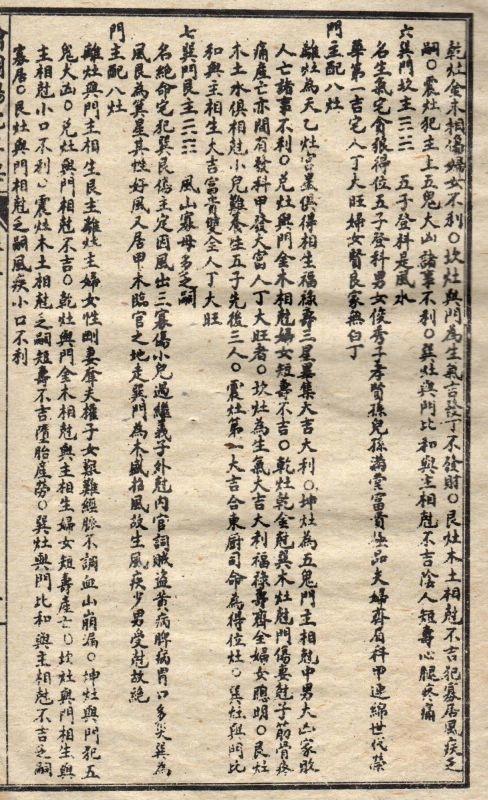 乾灶金木相傷婦女不利○坎灶與門為生氣吉發丁不發財○艮灶木土相尅不吉犯寡居風疾乏
嗣○震灶犯主上五鬼大凶諸事不利○巽灶與門比和與主相尅不吉陰人短壽心腿疼痛
六巽門坎主三三 五子登科是風水
名生氣宅貪狼得位五子登科男女俊秀子孝賢孫兒孫滿堂富貴極品夫婦齊眉科甲連綿世代榮
華第一吉宅人丁大旺婦女賢良家無白丁
門主配八灶
離灶為天乙灶宮星俱得相生福祿壽三星異集大吉大利○坤灶為五鬼門主相尅中男大凶家敗
人亡諸事不利○兌灶與門金木相尅婦女短壽不吉○乾灶乾金尅巽木灶尅門傷妻尅子筋骨疼
痛產亡亦間有發科甲發大富人丁大旺者○坎灶為生氣大吉大利福祿壽齊全婦女聰明○艮灶
木土水俱相尅小兒難養生五子先後三人○震灶第一大吉合東廚司命為得位灶○巽灶與門比
和與主相生大吉富貴雙全人丁大旺
七巽門艮主三三 風山寡母多乏嗣
名絕命宅犯巽艮傷主定因風出三寡傷小兒過繼義子外尅內官詞賊盜黃病脾病胃口多災巽為
風艮為箕星其性好風又居甲木臨官之地走巽門為木盛招風故生風疾少男受尅故絕
門主配八灶
離灶與門主相生艮主離灶主婦女性剛妻奪夫權子女艱難經脈不調血山崩漏○坤灶與門犯五
鬼大凶○兌灶與門相尅不吉○乾灶與門金木相尅與主相生婦女短壽產亡○坎灶與門相生與
主相尅小口不利○震灶木土相尅乏嗣短壽不吉墮胎產勞○巽灶與門比和與主相尅不吉乏嗣
寡居○艮灶與門相尅乏嗣風疾小口不利